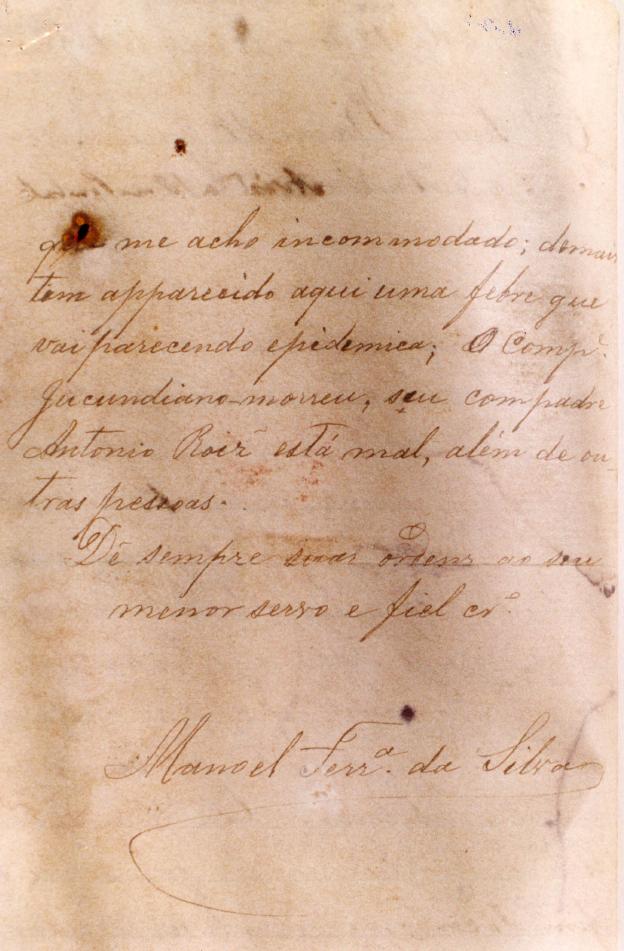 que me acho incommodado; demais
tem apparecido aqui uma febre que
vai parecendo epidemica; O Comp.ᵉ
Jucundiano morreu, seu compadre
Antonio Roiz está mal, além de ou-
tras pessoas.
Dê sempre suas ordens ao seu
menor servo e fiel cr.º
Manoel Ferr.ª da Silva